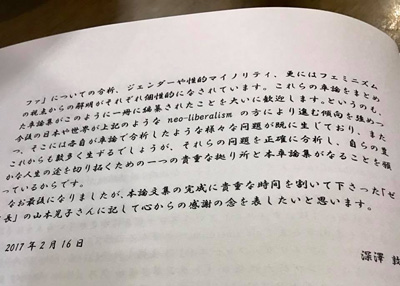 ファ」についての分析、ジェンダーや性的マイノリティ、更にはフェミニズム
の視点からの解明がそれぞれ個性的になされています。これらの卒論をまとめ
た卒論集がこのように一冊に編纂されたことを大いに歓迎します。というのも、
今後の日本や世界が上記のような neo-liberalism の方により進む傾向を強め、
つ、そこには各自が卒論で分析したような様々な問題が既に生じており、また
これからも数多く生ずるでしょうが、それらの問題を正確に分析し、自らの豊
かな人生の途を切り拓くための一つの貴重な拠り所と本卒論集がなることを願
っているからです。
なお最後になりましたが、本論文集の完成に貴重な時間を割いて下さった「ゼ
長」の山本晃子さんに記して心からの感謝の念を表したいと思います。
2017年2月16日
深澤 敦